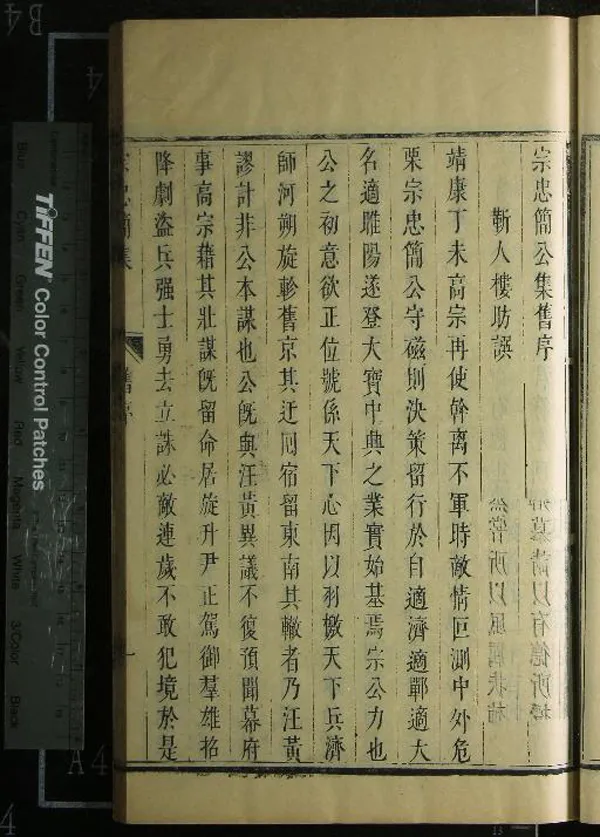 宗忠簡公集舊序
靳人樓昉譔
靖康丁未高宗再使幹离不軍時敵情叵測中外危
栗宗忠簡公守磁則決策留行於自適濟適鄆適大
名適睢陽遂登大寶中興之業實始基焉宗公力也
公之初意欲正位號係天下心因以羽檄天下兵濟
師河朔旋軫舊京其迂囘宿留東南其轍者乃汪黃
謬計非公本謀也公旣與汪黃異議不復預聞幕府
事高宗藉其壯謀旣留命居旋升尹正駕御羣雄招
降劇盜兵强士勇去立誅必敵連歲不敢犯境於是
宗忠簡集
舊序
一
TIFFEN Color Control Patches
Blue
Cyan
Green
Yellow
Red
Magenta
White
3/Color
Black
B4
4
A4
4
13